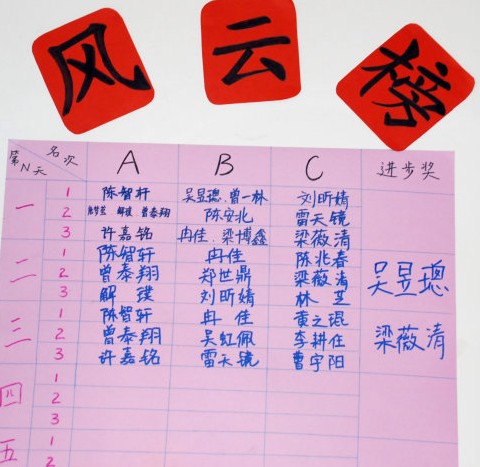 风云榜
第N天 名次 A B C 进步奖
一 1 陈智轩 吴昱璁.曾一林 刘昕婧
2 解璞 曾泰翔 陈安北 雷天镜
3 许嘉铭 冉佳.梁博鑫 梁薇清
二 1 陈智轩 冉佳 陈兆春
2 曾泰翔 郑世鼎 梁薇清 吴昱璁
3 解璞 刘昕婧 林昱
三 1 陈智轩 冉佳 黄之琨
2 曾泰翔 吴虹佩 李耕任 梁薇清
3 许嘉铭 雷天镜 曹宇阳
四 1
2
3
五 1
2